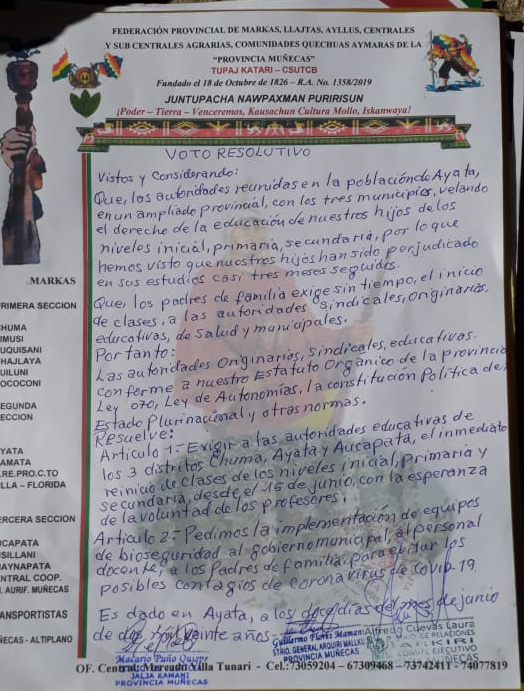 FEDERACIÓN PROVINCIAL DE MARKAS, LLAJTAS, AYLLUS, CENTRALES
Y SUB CENTRALES AGRARIAS, COMUNIDADES QUECHUAS AYMARAS DE LA
"PROVINCIA MUÑECAS"
TUPAJ KATARI – CSUTCB
Fundado el 18 de Octubre de 1826 – R.A. No. 1358/2019
JUNTUPACHA NAWPAXMAN PURIRISUN
¡Poder – Tierra – Venceremos, Kausachun Cultura Mollo, Iskanwaya!
VOTO RESOLUTIVO
Vistos y Considerando:
Que, los autoridades reunidas en la población de Ayata,
en un ampliado provincial, con los tres municipios, velando
el derecho de la educación de nuestros hijos de los
niveles inicial, primaria, secundaria, por lo que
hemos visto que nuestros hijos han sido perjudicado
en sus estudios casi tres meses seguidos.
Que, los padres de familia exige sin tiempo, el inicio
de clases, a las autoridades sindicales, originarias,
educativas, de Salud y municipales.
Por tanto:
Las autoridades Originarias, Sindicales, educativas.
conforme a nuestro Estatuto Orgánico de la provincia
Ley 070, Ley de Autonomías, la constitución Política del
Estado Plurinacional y otras normas.
Resuelve:
Articulo 1.- Exigir a las autoridades educativas de
los 3 distritos Chuma, Ayata y Aucapata, el inmediato
reinicio de clases de los niveles inicial, primaria y
secundaria, desde el 15 de junio, con la esperanza
de la voluntad de los profesores.
Articulo 2.- Pedimos la implementación de equipos
de bioseguridad al gobierno municipal, al personal
docente, a los Padres de familia para evitar los
posibles contagios de Coronavirus de Covid-19.
Es dado en Ayata, a los doce días del mes de junio
de dos mil veinte años
MARKAS
PRIMERA SECCION
HUMA
IMUSI
UQUISANI
HAJLAYA
UILUNI
OCOCONI
EGUNDA
ECCION
YATA
AMATA
RE.PRO.C.TO
LLA – FLORIDA
ERCERA SECCION
CAPATA
SILLANI
AYNAPATA
NTRAL COOP.
. AURIF. MUÑECAS
ANSPORTISTAS
ÑECAS - ALTIPLANO
Macario Puño Quispe
JALJA KAMANI
PROVINCIA MUÑECAS
Guillermo Flores Mamani
STRIO. GENERAL ARQUIRI MALLKU
PROVINCIA MUÑECAS
Alfredo Cuevas Laura
RELACIONES
COMITE EJECUTIVO
OF. Central: Mercado Villa Tunari - Cel.:73059204 – 67309468 – 73742411 – 74077819